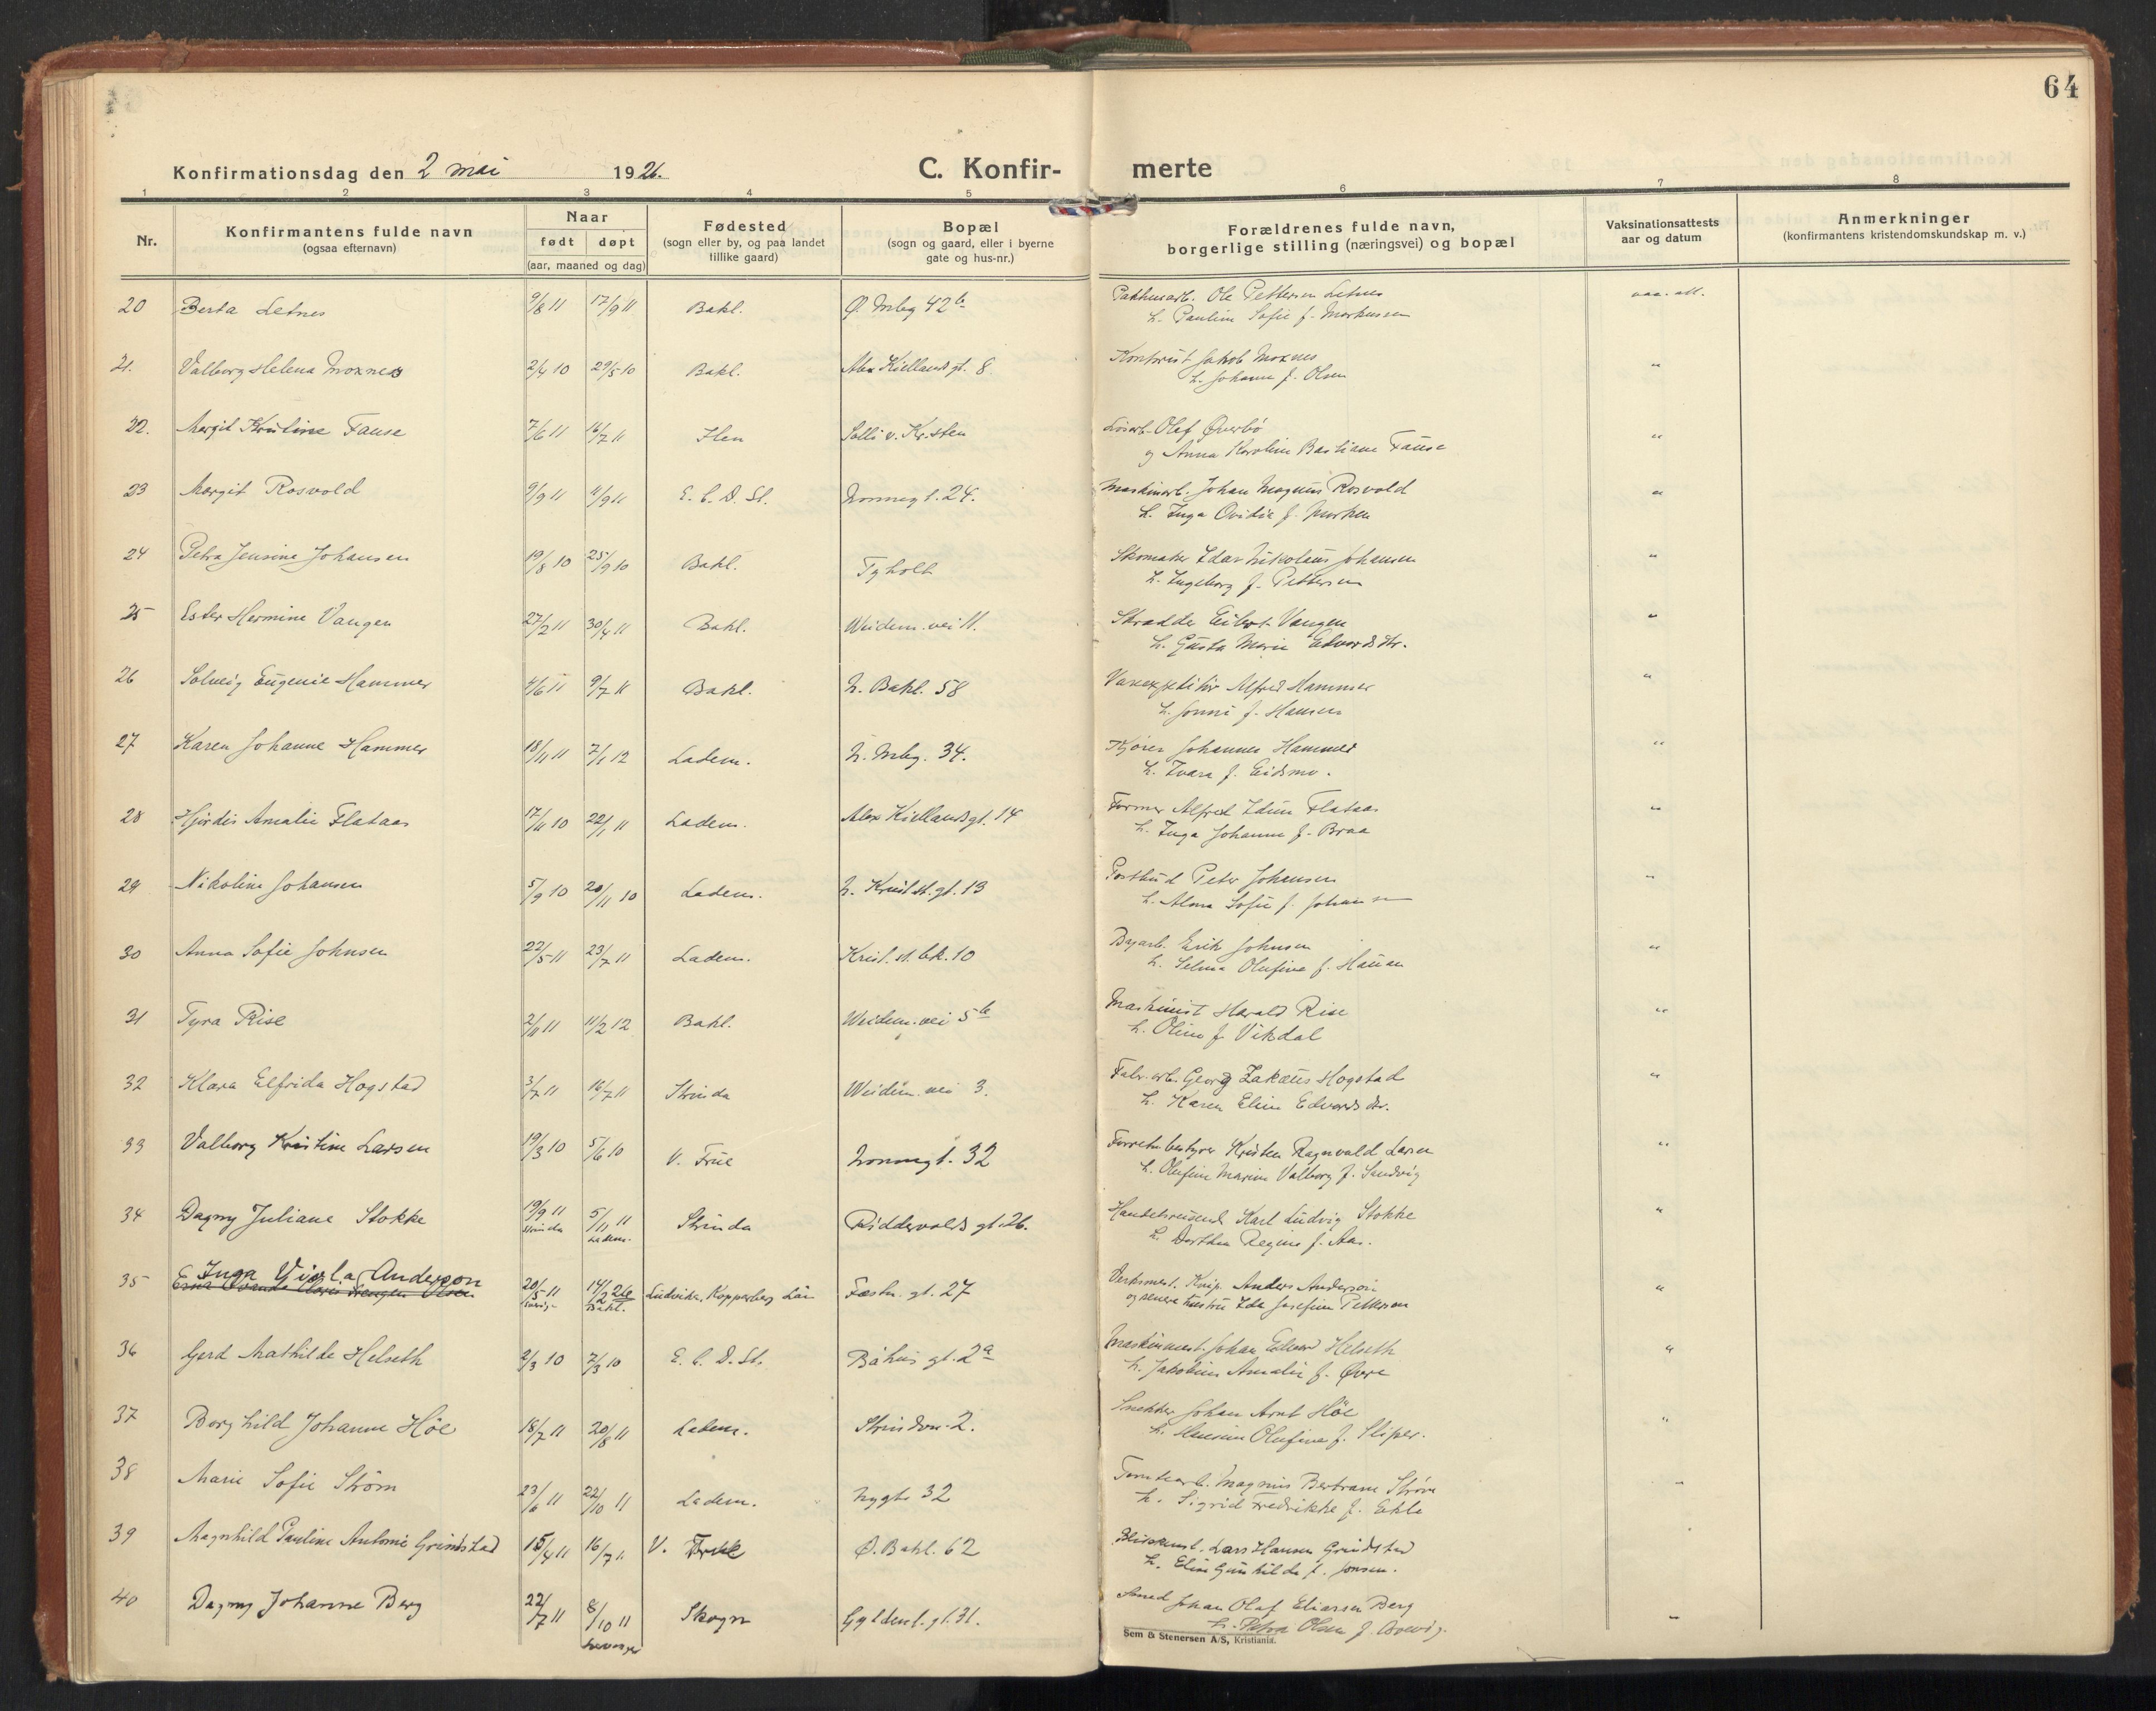 64
Konfirmationsdag den 2 mai 1926.
C. Konfir- merte
1 2 3 4 5 6 7 8
Nr.
Konfirmantens fulde navn
(ogsaa efternavn)
Naar
født døpt
(aar, maaned og dag)
Fødested
(sogn eller by, og paa landet
tillike gaard)
Bopæl
(sogn og gaard, eller i byerne
gate og hus-nr.)
Forældrenes fulde navn,
borgerlige stilling (næringsvei) og bopæl
Vaksinationsattests
aar og datum
Anmerkninger
(konfirmantens kristendomskundskap m. v.)
20 Berta Letnes 9/8 11 17/9 11 Bakl. Ø. Mbg 42b Pakhusarb. Ole Pettersen Letnes vac. att.
h. Pauline Sofie f. Markussen
21. Valborg Helena Moxness 2/4 10 29/5 10 Bakl. Alex Kiellands gt. 8 Kontorist Jakob Moxnes "
h. Johanna f. Olsen
22. Margit Kristine Fause 7/6 11 16/7 11 Ilen Solli v. Kr.sten Olaf Øverbø "
og Anna Karoline Bastiane Fause
23 Margit Rosvold 9/9 11 11/9 11 E. C. D. St. Nonnegt. 24. Maskinarb. Johan Magnus Rosvold "
h. Inga Ovidie f.
24 Petra Jensine Johansen 19/8 10 25/9 10 Bakl. Tyholt Skomaker Edar Nikolaus Johansen "
h. Ingeborg f. Pettersen
25 Ester Hermine Vangen 27/2 11 30/4 11 Bakl. Weidem. vei 11. Skrædder Eibert Vangen "
h. Gusta Marie Edvardsdtr.
26 Solveig Eugenie Hammer 4/6 11 9/7 11 Bakl. N. Bakl. 58 Vareexpeditør Alfred Hammer "
h. Jonni f. Hansen
27 Karen Johanne Hammer 18/11 11 7/1 12 Ladem. N. Mbg. 34. Kjører Johannes Hammer "
h. Ivara f. Eidsmo.
28 Hjørdis Amalie Flataas 17/11 10 22/1 11 Ladem. Alex Kiellandsgt. 14 Former Alfred Edin Flataas "
h. Inga Johanna f. Braa
29 Nikoline Johansen 5/9 10 20/11 10 Ladem. N. Krist.st.gt. 13 Postbud Peter Johansen "
h. Alma Sofie f. Johansen
30 Anna Sofie Johnsen 22/5 11 23/7 11 Ladem. Krist. st. bk. 10 Byarb. Erik Johnsen "
h. Selma Olufine f. Hauan
31 Tyra Rise 2/11 11 11/2 12 Bakl. Weidem. vei 5b Maskinist Harald Rise "
h. Oline f. Vikdal
32 Klara Elfrida Hogstad 3/7 11 16/7 11 Strinda Weidem. vei 3. Fabr. arb. Georg Zakæus Hogstad "
h. Karen Eline Edvardsdtr.
33 Valborg Kristine Larsen 19/3 10 5/6 10 V. Frue Nonnegt. 32 Forretn.bestyrer Kristen Ragnvald Larsen "
h. Olufine Marine Valborg f. Sandvig
34 Dagny Juliane Stokke 19/9 11 5/11 11 Strinda Riddervolds gt. 26. Handelsreisende Karl Ludvig Stokke "
Strinda Ladem. h. Dorthea Regine f. Aas.
Inga Viola Anderson
35 Olsen 20/5 11 14/2 26 Ludvika, Kopperberg Län Fæstn. gt. 27 Verksmest. Anders Anderson "
Sverige Bakl. og senere hustru Ida Josefina Petterson
36 Gerd Mathilde Helseth 2/3 10 7/3 10 E. C. D. St. Båhus gt. 2a Maskinmest. Johan Edvard Helseth "
h. Jakobine Amalie f. Øvre
37 Borghild Johanne Höe 18/7 11 20/8 11 Ladem. Strindvn. 2. Snekker Johan Arnt Höe "
h. Olufine f. Stiper.
38 Marie Sofie Strøm 23/6 11 22/10 11 Ladem. Nygt. 32 Tomtearb. Magnus Bertram Strøm "
h. Sigrid Fredrikke f. Ekle
39 Magnhild Pauline Antonie Grindstad 15/4 11 16/7 11 V. Frue Ø. Bakl. 62 Lars Hansen Grindstad
h. Eline Gunhilda f. Jonsen.
40 Dagny Johanne Berg 22/7 11 8/10 11 Skogn Gyldenl. gt. 31. Smed Johan Olaf Eliasen Berg "
Levanger h. Petra Olsen f.
Sem & Stenersen A/S, Kristiania.